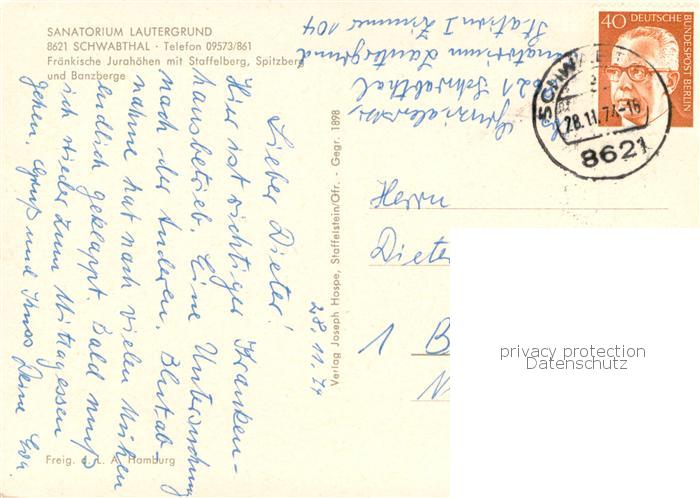 SANATORIUM LAUTERGRUND
8621 SCHWABTHAL · Telefon 09573/861
Fränkische Jurahöhen mit Staffelberg, Spitzberg
und Banzberge
Lieber Dieter!
Hier ist richtiger Kranken-
hausbetrieb. Eine Untersuchung
nach der anderen. Blutab-
nahme hat nach vielen Mühen
endlich geklappt. Bald muß
ich wieder zum Mittagessen
gehen. Gruß und Kuss Deine Eva
28.11.74
Freig. d. L. A. Hamburg
Verlag Joseph Hospe, Staffelstein/Ofr. - Gegr. 1898
8621 Schwabthal
Sanatorium Lautergrund
Station I Zimmer 104
40 DEUTSCHE BUNDESPOST BERLIN
28.11.74-16
8621
Herrn
Dieter
1 B
privacy protection
Datenschutz